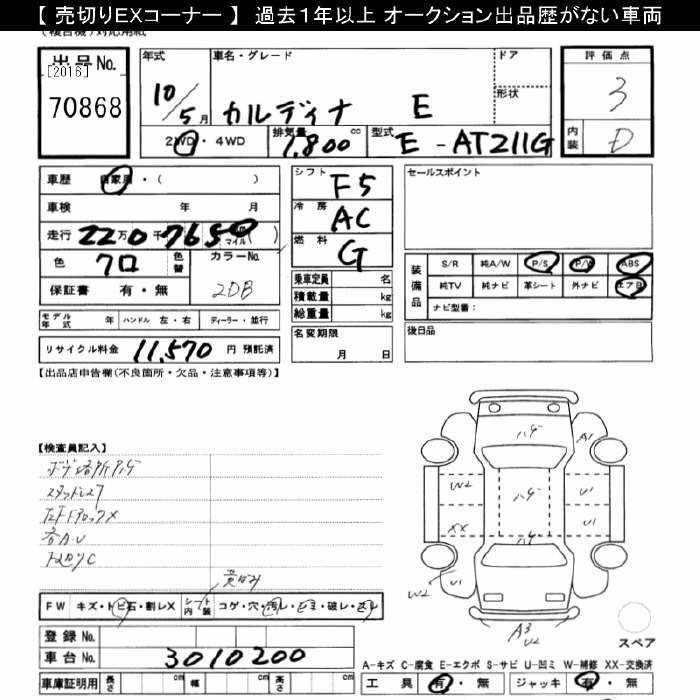 【 売切りEXコーナー 】 過去１年以上 オークション出品歴がない車両
出品 No.
[2016]
70868
年式 車名・グレード ドア 形状
10/5月 カルディナ E
2WD・4WD 排気量 1,800 cc 型式 E - AT211G
評価点
3
内装 D
車歴 自家用・( )
車検 年 月
走行 220万千7650 マイル ( )
色 クロ 色替 カラーNo. 2DB
保証書 有・無
モデル年式 年 ハンドル 左・右 ディーラー・並行
リサイクル料金 11,570 円 預託済
シフト F5
冷房 AC
燃料 G
乗車定員 名
積載量 kg
総重量 kg
名変期限
月 日
セールスポイント
装備品 S/R 純A/W P/S P/W ABS
純TV 純ナビ 革シート 外ナビ エアB
ナビ型番:
後日品
【出品店申告欄(不良箇所・欠品・注意事項等)】
【検査員記入】
スタッドレス7
各A・U
FW キズ・トビ石・割レX シート内装 コゲ・穴・汚レ・シミ・破レ・スレ
登録 No.
車台 No. 3010200
車庫証明用 長さ cm 幅 cm 高さ cm
ハゲ A1
W2 ハゲ U1
XX U1
W2 U1
A3
U2
スペア
A-キズ C-腐食 E-エクボ S-サビ U-凹ミ W-補修 XX-交換済
工具 有・無 ジャッキ 有・無